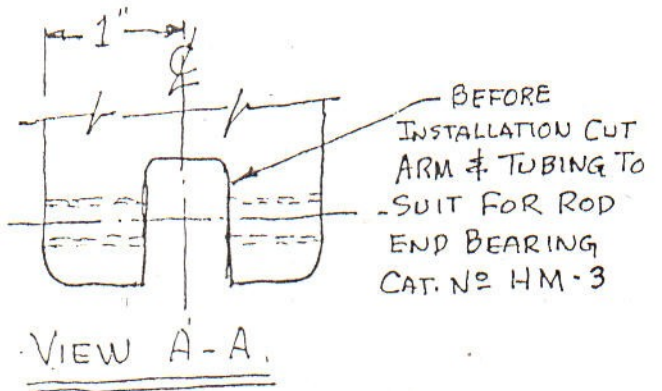 1"
℄
BEFORE
INSTALLATION CUT
ARM & TUBING TO
SUIT FOR ROD
END BEARING
CAT. Nº HM-3
VIEW A-A.